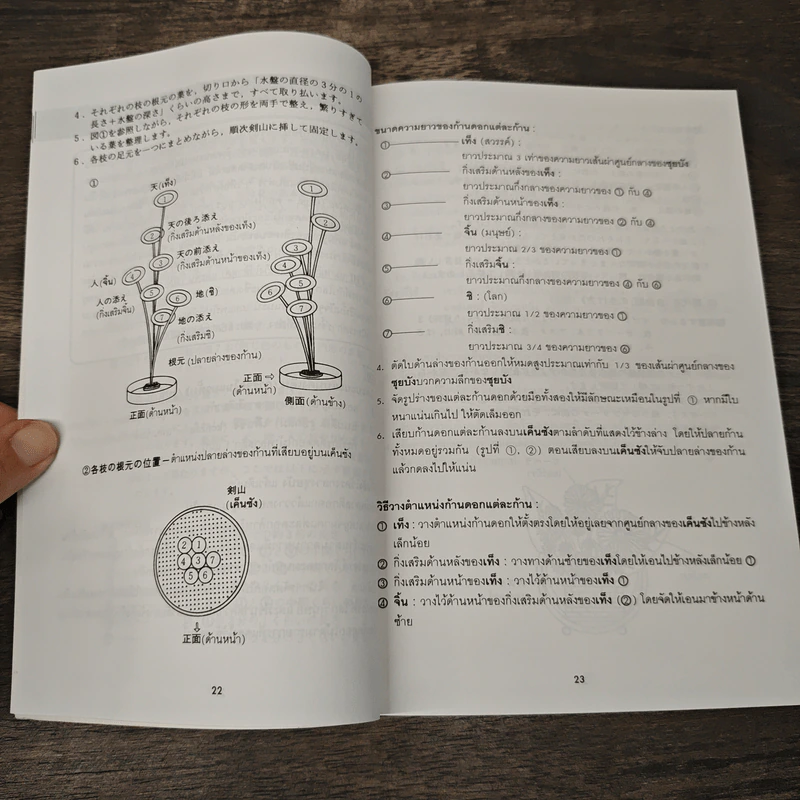 4. それぞれの枝の根元の葉を、切り口から「水盤の直径の3分の1の
長さ+水盤の深さ」くらいの高さまで、すべて取り払います。
5. 図①を参照しながら、それぞれの枝の形を両手で整え、繁りすぎて
いる葉を整理します。
6. 各枝の足元を一つにまとめながら、順次剣山に挿して固定します。
①
天(เท็ง)
1
1
天の後ろ添え
(กิ่งเสริมด้านหลังของเท็ง)
2
2
天の前添え
(กิ่งเสริมด้านหน้าของเท็ง)
3
3
人(จิ้น)
4
4
人の添え
(กิ่งเสริมจิ้น)
5
5
地(ชิ)
6
6
地の添え
(กิ่งเสริมชิ)
7
7
根元 (ปลายล่างของก้าน)
正面⇨
(ด้านหน้า)
正面(ด้านหน้า)
側面(ด้านข้าง)
②各枝の根元の位置－ตำแหน่งปลายล่างของก้านที่เสียบอยู่บนเค็นซัง
剣山
(เค็นซัง)
2 1
4 3 7
5 6
⇩
正面(ด้านหน้า)
22
ขนาดความยาวของก้านดอกแต่ละก้าน :
① เท็ง (สวรรค์) :
ยาวประมาณ 3 เท่าของความยาวเส้นผ่าศูนย์กลางของซุยบัง
② กิ่งเสริมด้านหลังของเท็ง :
ยาวประมาณกึ่งกลางของความยาวของ ① กับ ④
③ กิ่งเสริมด้านหน้าของเท็ง :
ยาวประมาณกึ่งกลางของความยาวของ ② กับ ④
④ จิ้น (มนุษย์) :
ยาวประมาณ 2/3 ของความยาวของ ①
⑤ กิ่งเสริมจิ้น :
ยาวประมาณกึ่งกลางของความยาวของ ④ กับ ⑥
⑥ ชิ : (โลก)
ยาวประมาณ 1/2 ของความยาวของ ①
⑦ กิ่งเสริมชิ :
ยาวประมาณ 3/4 ของความยาวของ ⑥
4. ตัดใบด้านล่างของก้านออกให้หมดสูงประมาณเท่ากับ 1/3 ของเส้นผ่าศูนย์กลางของ
ซุยบังบวกความลึกของซุยบัง
5. จัดรูปร่างของแต่ละก้านดอกด้วยมือทั้งสองให้มีลักษณะเหมือนในรูปที่ ① หากมีใบ
หนาแน่นเกินไป ให้ตัดเล็มออก
6. เสียบก้านดอกแต่ละก้านลงบนเค็นซังตามลำดับที่แสดงไว้ข้างล่าง โดยให้ปลายก้าน
ทั้งหมดอยู่รวมกัน (รูปที่ ①, ②) ตอนเสียบลงบนเค็นซังให้จับปลายล่างของก้าน
แล้วกดลงไปให้แน่น
วิธีวางตำแหน่งก้านดอกแต่ละก้าน :
① เท็ง : วางตำแหน่งก้านดอกให้ตั้งตรงโดยให้อยู่เลยจากศูนย์กลางของเค็นซังไปข้างหลัง
เล็กน้อย
② กิ่งเสริมด้านหลังของเท็ง : วางทางด้านซ้ายของเท็งโดยให้เอนไปข้างหลังเล็กน้อย ①
③ กิ่งเสริมด้านหน้าของเท็ง : วางไว้ด้านหน้าของเท็ง ①
④ จิ้น : วางไว้ด้านหน้าของกิ่งเสริมด้านหลังของเท็ง (②) โดยจัดให้เอนมาข้างหน้าด้าน
ซ้าย
23